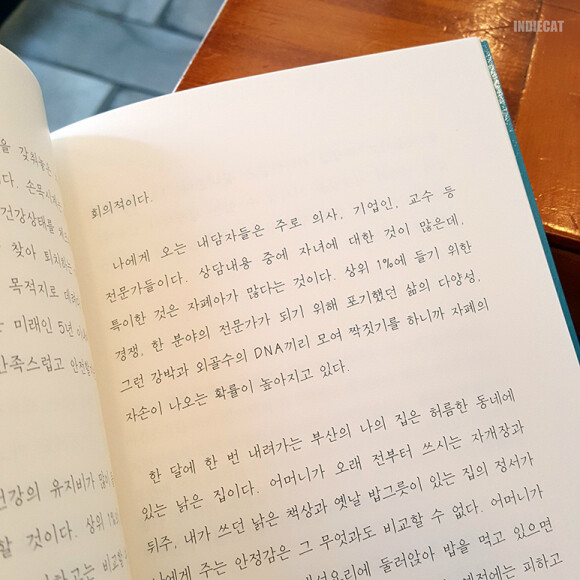 INDIECAT
을 갖춰놓은
다. 손목시계
건강상태를
찾아 퇴치하
목적지로 데려
미래인 5년
만족스럽고 안전
건강의 유지비가 많이
할 것이다. 상위 1%
비교할
회의적이다.
나에게 오는 내담자들은 주로 의사, 기업인, 교수 등
전문가들이다. 상담내용 중에 자녀에 대한 것이 많은데,
특이한 것은 자폐아가 많다는 것이다. 상위 1%에 들기 위한
경쟁, 한 분야의 전문가가 되기 위해 포기했던 삶의 다양성,
그런 강박과 외골수의 DNA끼리 모여 짝짓기를 하니까 자폐의
자손이 나오는 확률이 높아지고 있다.
한 달에 한 번 내려가는 부산의 나의 집은 허름한 동네에
있는 낡은 집이다. 어머니가 오래 전부터 쓰시는 자개장과
뒤주, 내가 쓰던 낡은 책상과 옛날 밥그릇이 있는 집의 정서가
나에게 주는 안정감은 그 무엇과도 비교할 수 없다. 어머니가
둘러앉아 밥을 먹고 있으면
피하고